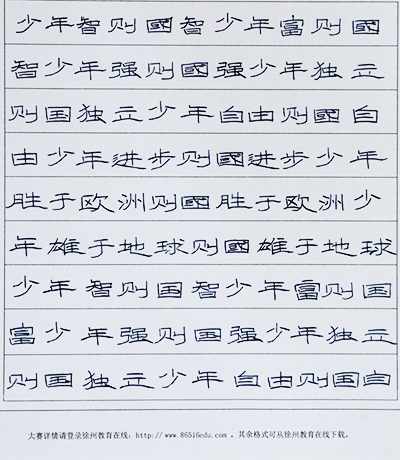 少年智则國智少年富则國
智少年强则國强少年独立
则国独立少年自由则國自
由少年进步则國进步少年
胜于欧洲则國胜于欧洲少
年雄于地球则國雄于地球
少年智则国智少年富则国
富少年强则国强少年独立
则国独立少年自由则国自
大赛详情请登录徐州教育在线：http://www.86516edu.com 。其余格式可从徐州教育在线下载。